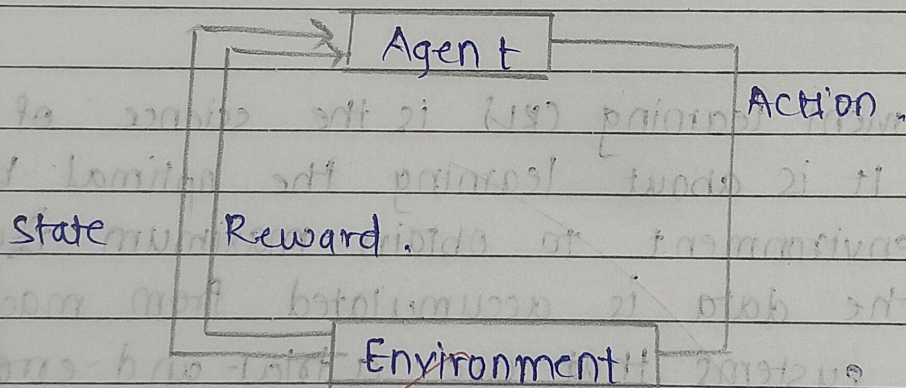 Agent
Action.
State Reward.
Environment